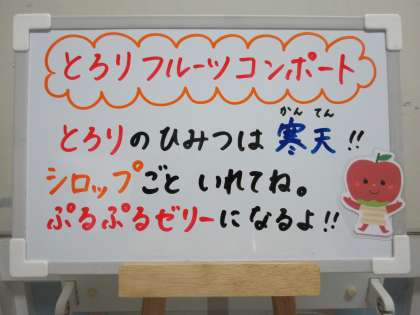 とろりフルーツコンポート
かんてん
とろりのひみつは寒天!!
シロップごといれてね。
ぷるぷるゼリーになるよ!!